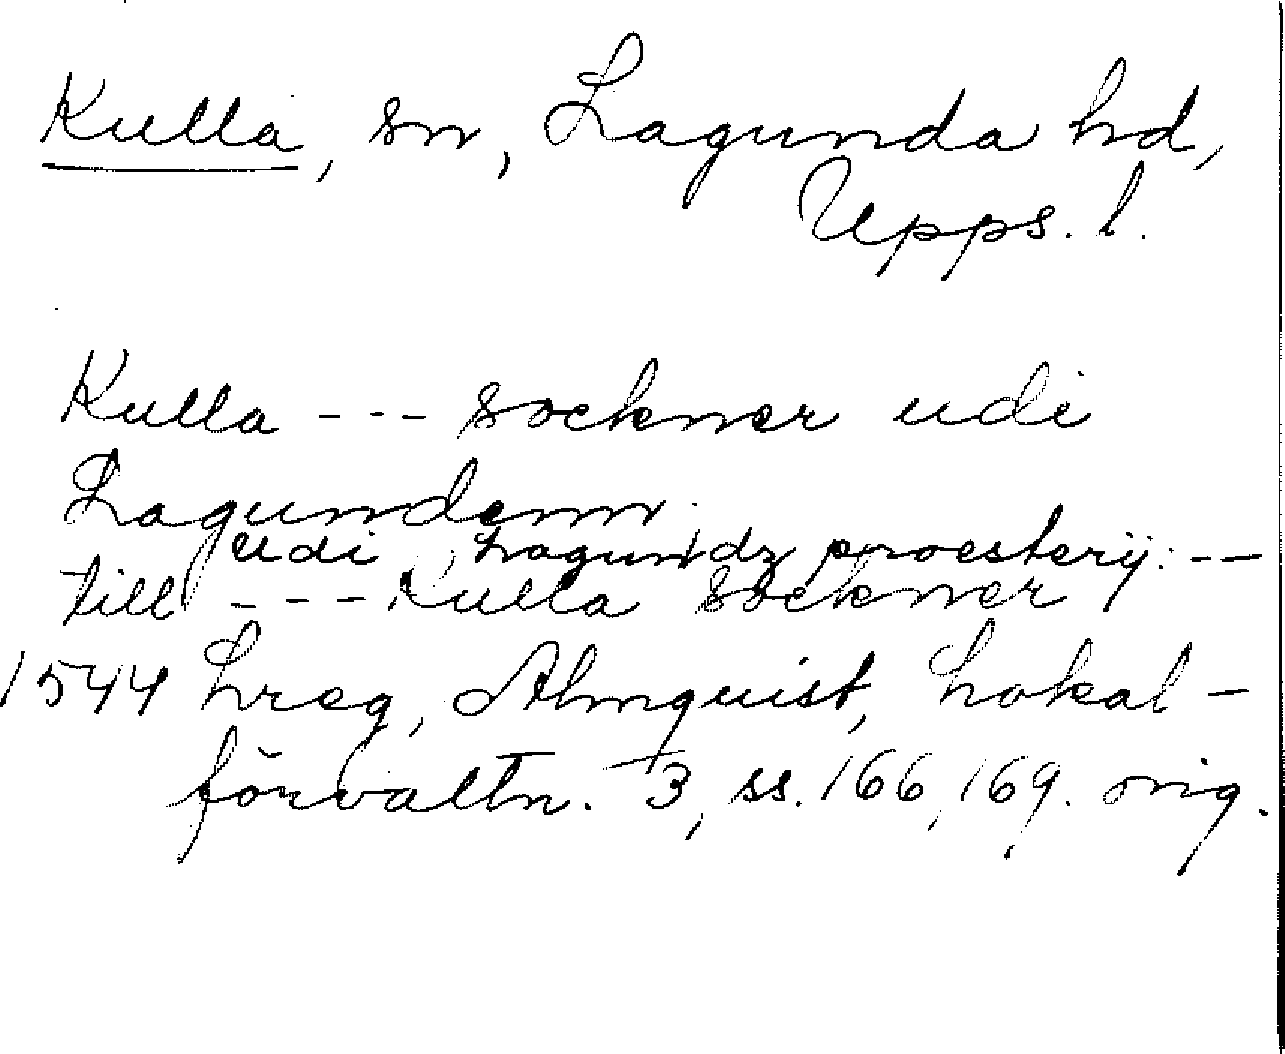 Kulla, sn, Lagunda hd,
Upps. l.
Kulla --- sockner udi
Lagundenn.
udi Lagundz proesterij: --
till --- Kulla sockner
1544 Lreg, Almquist, Lokal-
förvaltn. 3, ss. 166, 169. orig.